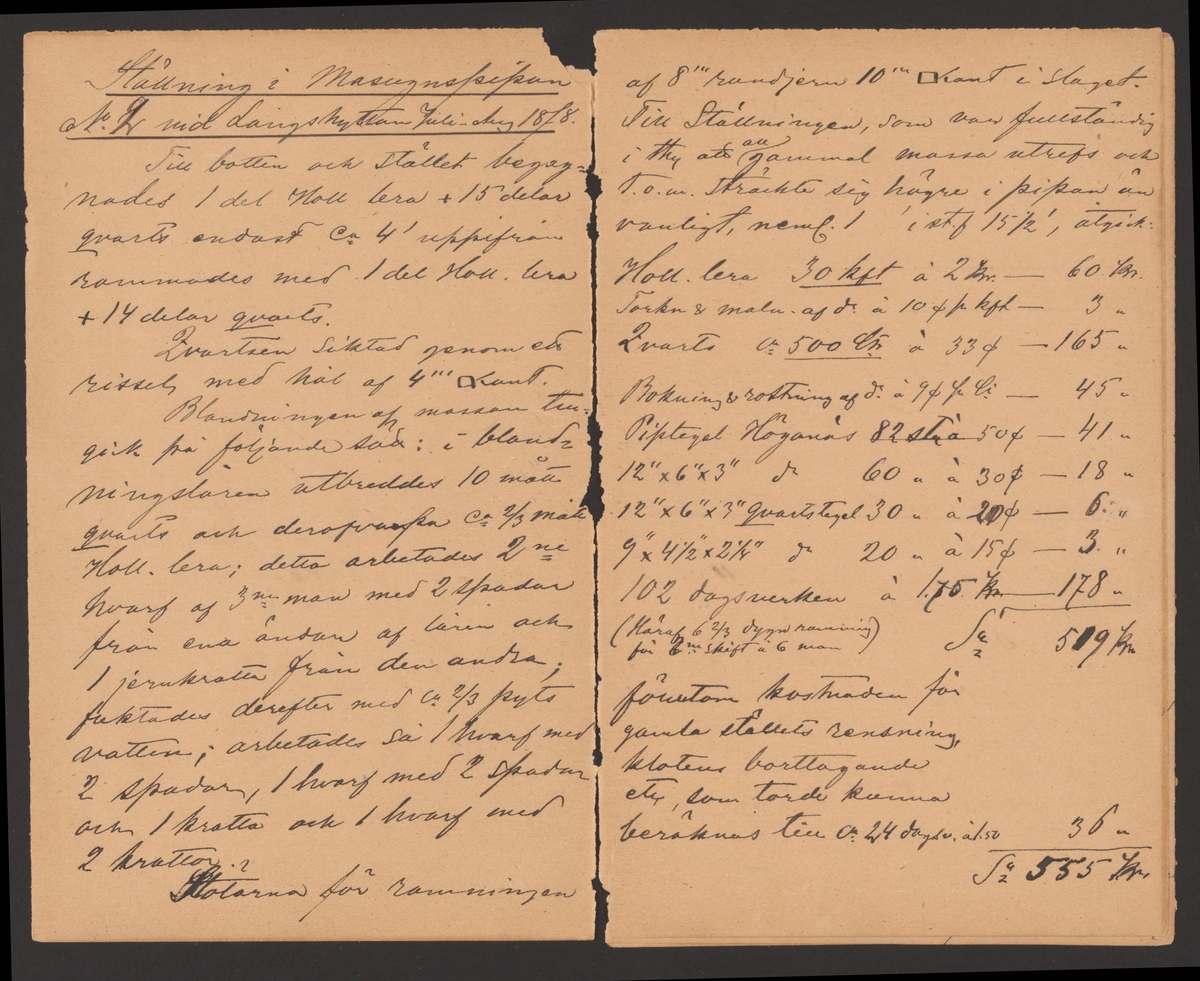 Ställning i Masugnspipan
No 2 vid Långshyttan Juli-Aug 1878.
Till botten och stället begag-
nades 1 del Holl lera + 15 delar
qvarts endast ca 4' uppifrån
rammades med 1 del Holl. lera
+ 14 delar qvarts.
Qvartsen siktad genom ett
rissel, med hål af 4''' □kant.
Blandningen af massan till-
gick på följande sätt: i bland-
ningslåren utbreddes 10 mått
qvarts och derofvanpå ca 2/3 mått
Holl. lera; detta arbetades 2ne
hvarf af 3ne man med 2 spadar
från ena ändan af låren och
1 jernkratta från den andra;
fuktades derefter med ca 2/3 pyts
vatten; arbetades så 1 hvarf med
2 spadar, 1 hvarf med 2 spadar
och 1 kratta och 1 hvarf med
2 krattor.
Stötarna för ramningen
af 8''' rundjern 10''' □kant i slaget.
Till Ställningen, som var fullständig
i thy att all gammal massa utrefs och
t.o.m. sträckte sig högre i pipan än
vanligt, neml. 1 ' i st.f 15 1/2', åtgick:
Holl. lera 30 kft à 2 Kr. — 60 Kr.
Torkn & maln. af do à 10 ¢ pr kft — 3 "
Qvarts ca 500 Ctr à 33 ¢ — 165 "
Bokning & rostning af do à 9 ¢ pr Ctr — 45 "
Piptegel Höganäs 82 st à 50 ¢ — 41 "
12" x 6" x 3" do 60 " à 30 ¢ — 18 "
12" x 6" x 3" qvartstegel 30 " à 20 ¢ — 6. "
9" x 4 1/2" x 2 1/4" do 20 " à 15 ¢ — 3. "
102 dagsverken à 1.75 Kr — 178 "
(Häraf 6 2/3 dygn ramning) Sa 519 Kr
för 2ne skift à 6 man
förutom kostnaden för
gamla ställets rensning,
klotens borttagande
etc, som torde kunna
beräknas till ca 24 dagsv. à 1.50 36 "
Sa 555 Kr.